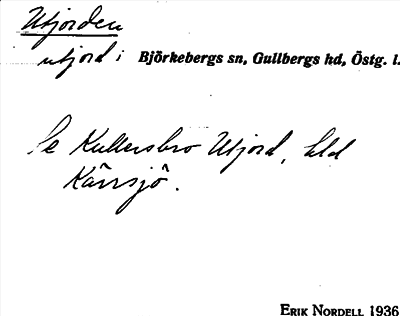 Utjorden
utjord i Björkebergs sn, Gullbergs hd, Östg. l.
Se Kullersbro Utjord, bld
Kärrsjö.
ERIK NORDELL 1936